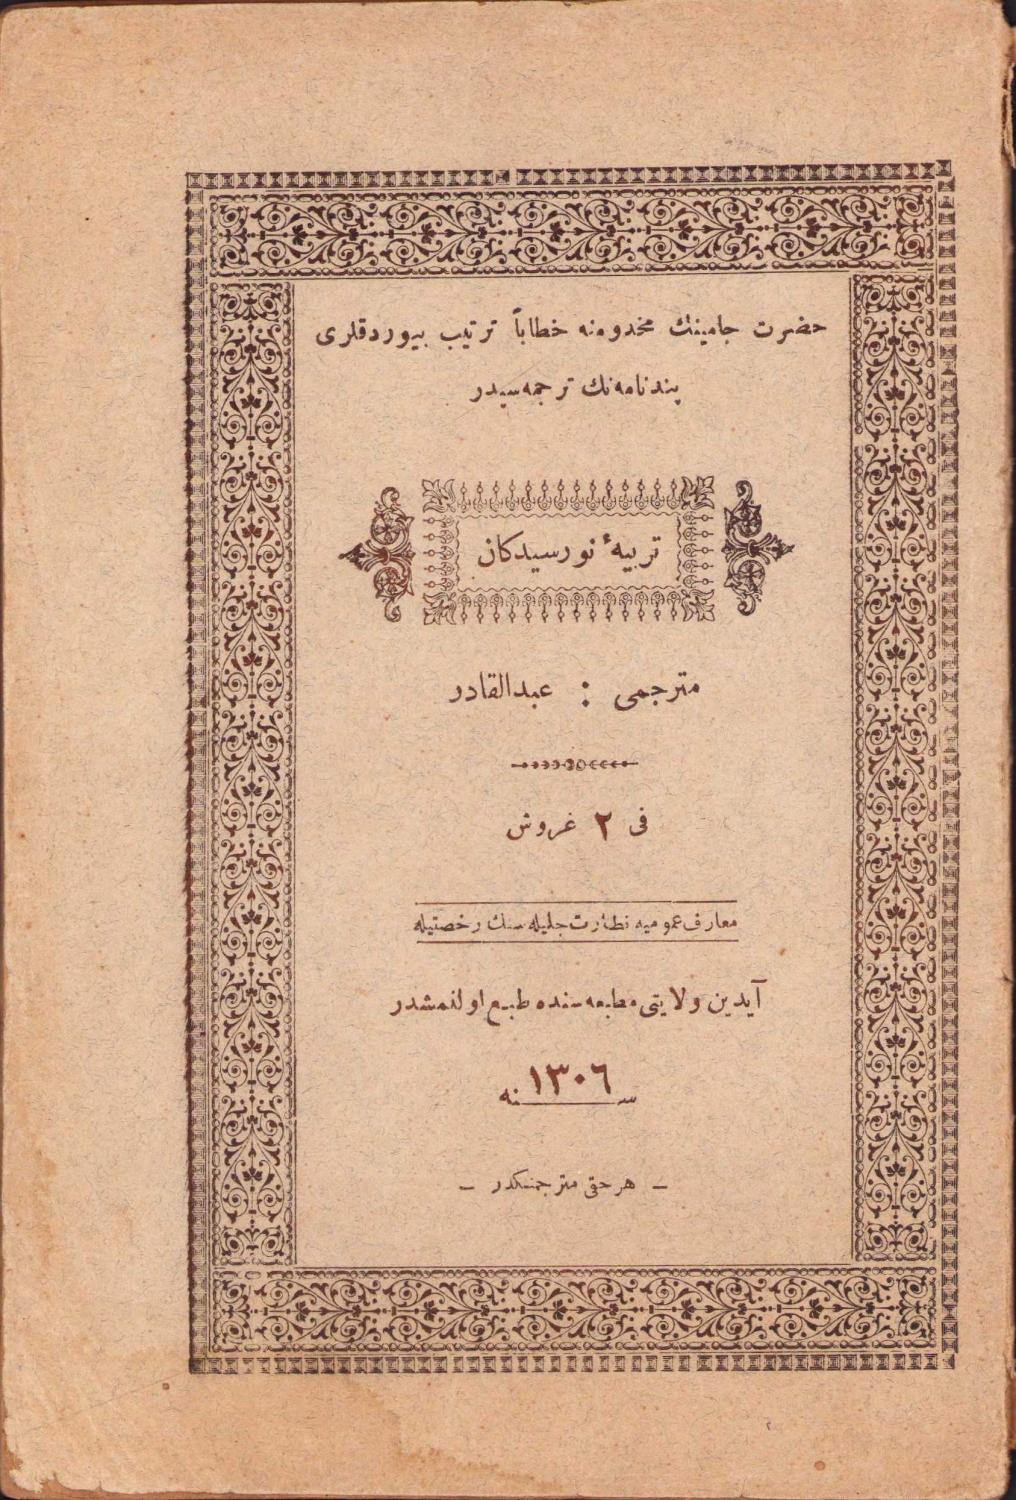 حضرت جامینك مخدومنه خطاباً ترتیب بیوردقلری
پندنامه‌نك ترجمه‌سیدر
تربیهٔ نورسیدكان
مترجمی : عبدالقادر
فی ٢ غروش
معارف عمومیه نظارت جلیله‌سنك رخصتیله
آیدین ولایتی مطبعه‌سنده طبع اولنمشدر
سنه ١٣٠٦
— هر حقی مترجمنكدر —